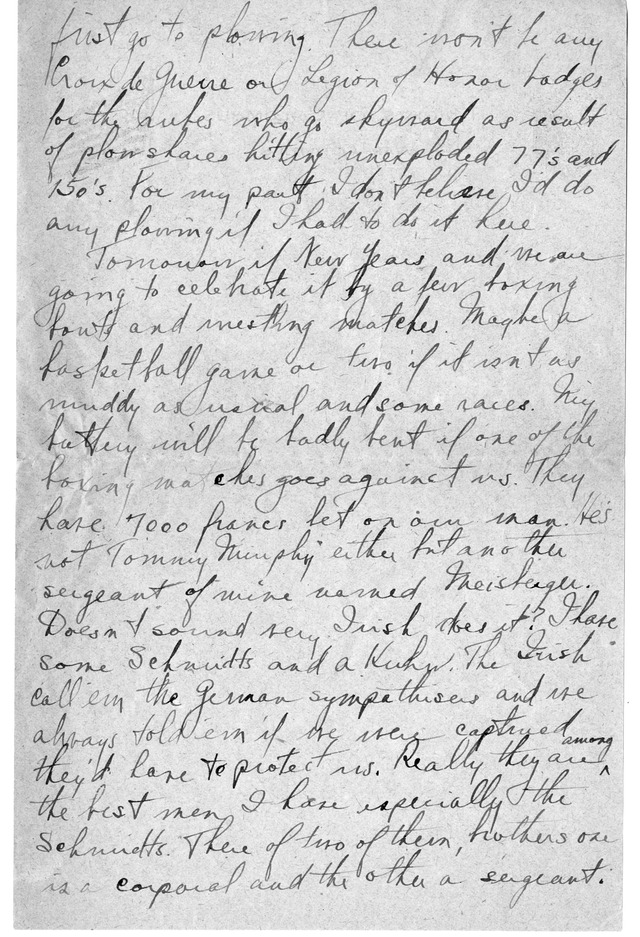 first go to plowing. There won't be any
Croix de Guerre or Legion of Honor badges
for the rubes who go skyward as result
of plowshares hitting unexploded 77's and
150's. For my part I don't believe I'd do
any plowing if I had to do it here.
Tomorrow if New Years and we are
going to celebrate it by a few boxing
bouts and wrestling matches. Maybe a
basketball game or two if it isn't as
muddy as usual and some races. My
battery will be badly bent if one of the
boxing matches goes against us. They
have 7000 francs bet on our man. He's
not Tommy Murphy either but another
sergeant of mine named Meisberger.
Doesn't sound very Irish does it? I have
some Schmidts and a Kuhn. The Irish
call em the German sympathisers and we
always told em if we were captured
they'd have to protect us. Really they are ^among
the best men I have especially the
Schmidts. There of two of them, brothers one
is a corporal and the other a sergeant.